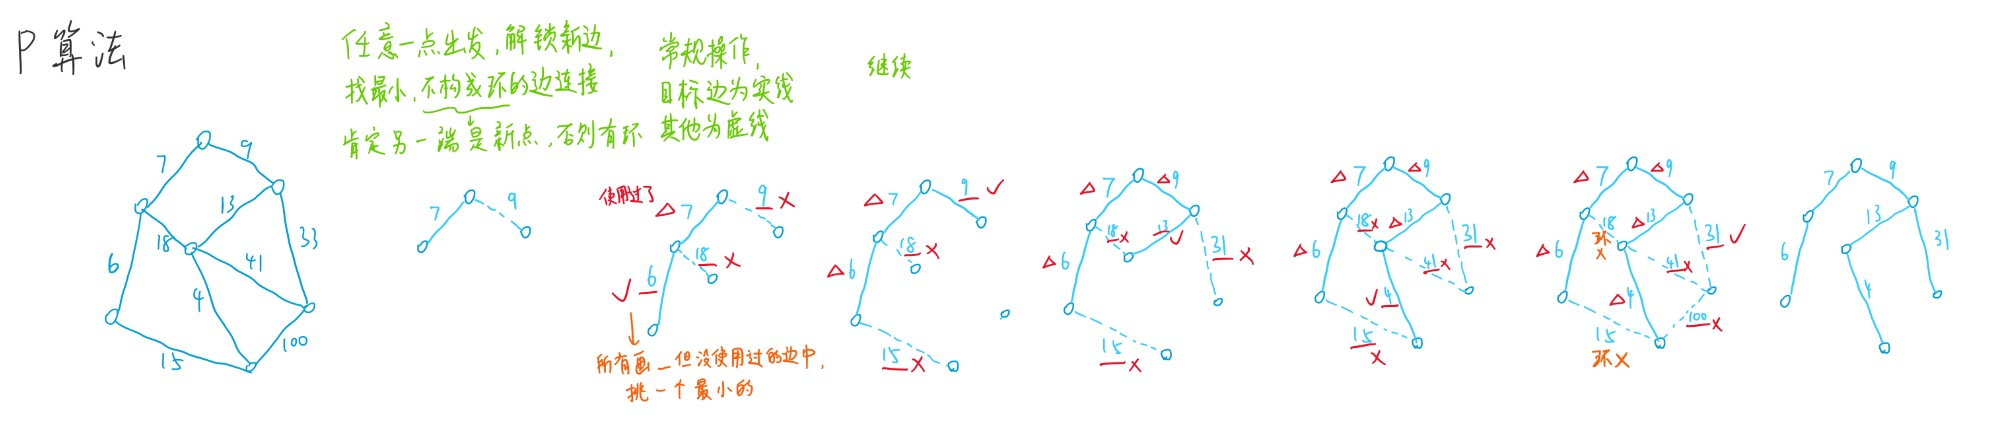 P算法
任意一点出发,解锁新边,
找最小,不构成环的边连接
肯定另一端是新点,否则有环
常规操作,
目标边为实线
其他为虚线
继续
7
9
13
18
33
6
41
4
15
100
7
9
使用过了
△ 7
9 ×
18 ×
✓ 6
所有画_但没使用过的边中,
挑一个最小的
△ 7
9 ✓
18 ×
△ 6
15 ×
△ 7
△ 9
18 ×
13 ✓
31 ×
△ 6
15 ×
△ 7
△ 9
18 ×
△ 13
31 ×
△ 6
41 ×
✓ 4
15
×
△ 7
△ 9
18
环
×
△ 13
31 ✓
△ 6
41 ×
△ 4
100 ×
15
环×
7
9
13
31
6
4